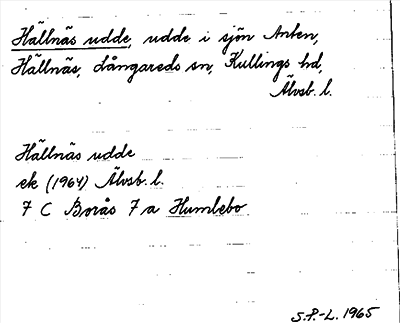 Hällnäs udde, udde i sjön Anten,
Hällnäs, Långareds sn, Kullings hd,
Älvsb. l.
Hällnäs udde
ek (1964) Älvsb. l.
7 C Borås 7 a Humlebo
S.P.-L. 1965